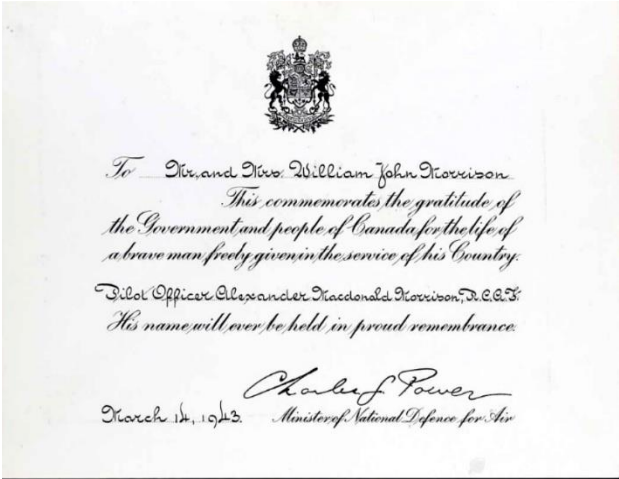 To Mr. and Mrs. William John Morrison
This commemorates the gratitude of
the Government and people of Canada for the life of
a brave man freely given in the service of his Country.
Pilot Officer Alexander Macdonald Morrison, R.C.A.F.
His name will ever be held in proud remembrance.
Charles G Power
March 14, 1943. Minister of National Defence for Air